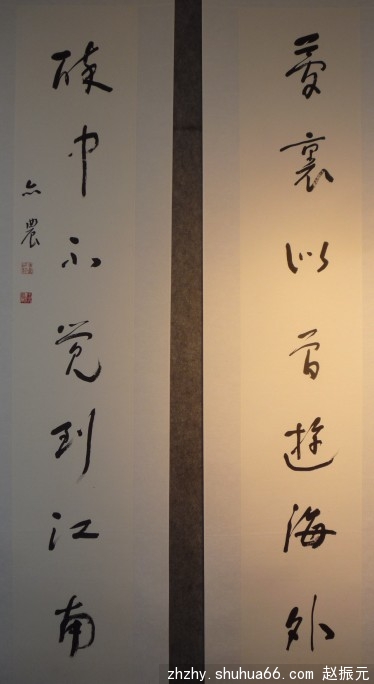 夢裏似曾遊海外
醉中不觉到江南
亦農
zhzhy.shuhua66.com 赵振元